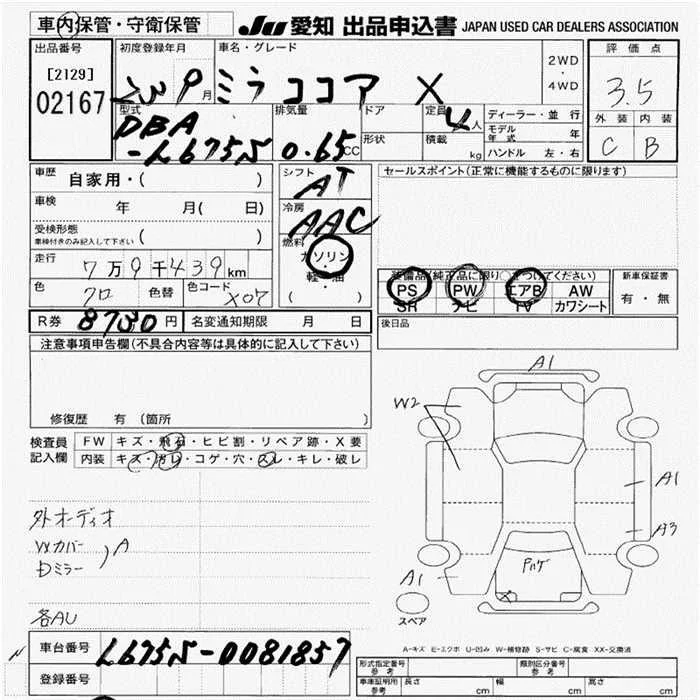 車内保管・守衛保管
JU 愛知 出品申込書 JAPAN USED CAR DEALERS ASSOCIATION
出品番号
[2129]
02167
初度登録年月
9月
車名・グレード
ミラ ココア X
2WD
・
4WD
評価点
3.5
外装 内装
C B
型式
DBA
-L675S
排気量
0.65CC
ドア
形状
定員
4人
積載
kg
ディーラー・並行
モデル年式 年
ハンドル 左・右
車歴
自家用・( )
車検
年 月( 日)
受検形態
車検付きのみ記入して下さい ( )
走行
7万9千439km
色
クロ
色替
色コード
X07
シフト
AT
冷房
AAC
燃料
ガソリン
・
軽・油
( )
セールスポイント(正常に機能するものに限ります)
装備品(純正品に限り○をつけてください)
PS PW エアB AW
SR ナビ TV カワシート
新車保証書
有・無
R券 8730円
名変通知期限 月 日
後日品
注意事項申告欄(不具合内容等は具体的に記入して下さい)
修復歴 有 (箇所 )
検査員
記入欄
FW キズ・飛石・ヒビ割・リペア跡・X要
内装 キズ・汚レ・コゲ・穴・スレ・キレ・破レ
外オーディオ
Wカバー
Dミラー
A
各AU
A1
W2
A1
A3
A1
Pハゲ
X
スペア
A-キズ E-エクボ U-凹み W-補修跡 S-サビ C-腐食 XX-交換済
車台番号 L675S-0081857
登録番号
形式指定番号
参考
類別区分番号
参考
車庫証明用
参考
長さ cm 幅 cm 高さ cm